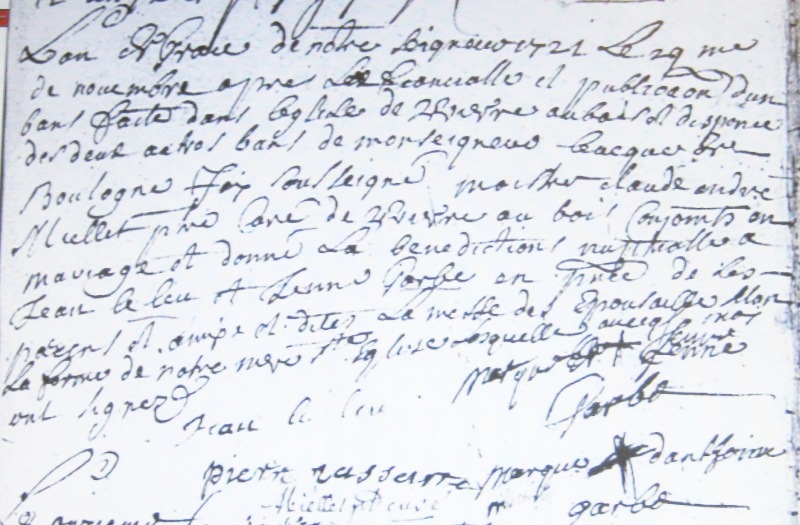 L'an de Grace de notre seigneur 1721 Le 29 me
de novembre apres Les fiancialle et publication d'un
bans faite dans l'eglise de Wierre aubois et dispence
des deux autres bans de monseigneur levesque de
Boulogne Je soussigné maistre claude andré
Miellet ptre Curé de Wierre au bois Conjoints en
mariage et donné La benedictions nuptialle a
Jean le leu et Jenne Garbe en pnce de Les
parens et amips et dites La messe des Epousaille selon
La forme de notre mere Ste Eglise lesquelle avecq moi
ont signez
marque de Jenne
Garbe
Jean le leu
pierre nasserre marque danthoine
garbe
Miellet ptre curé